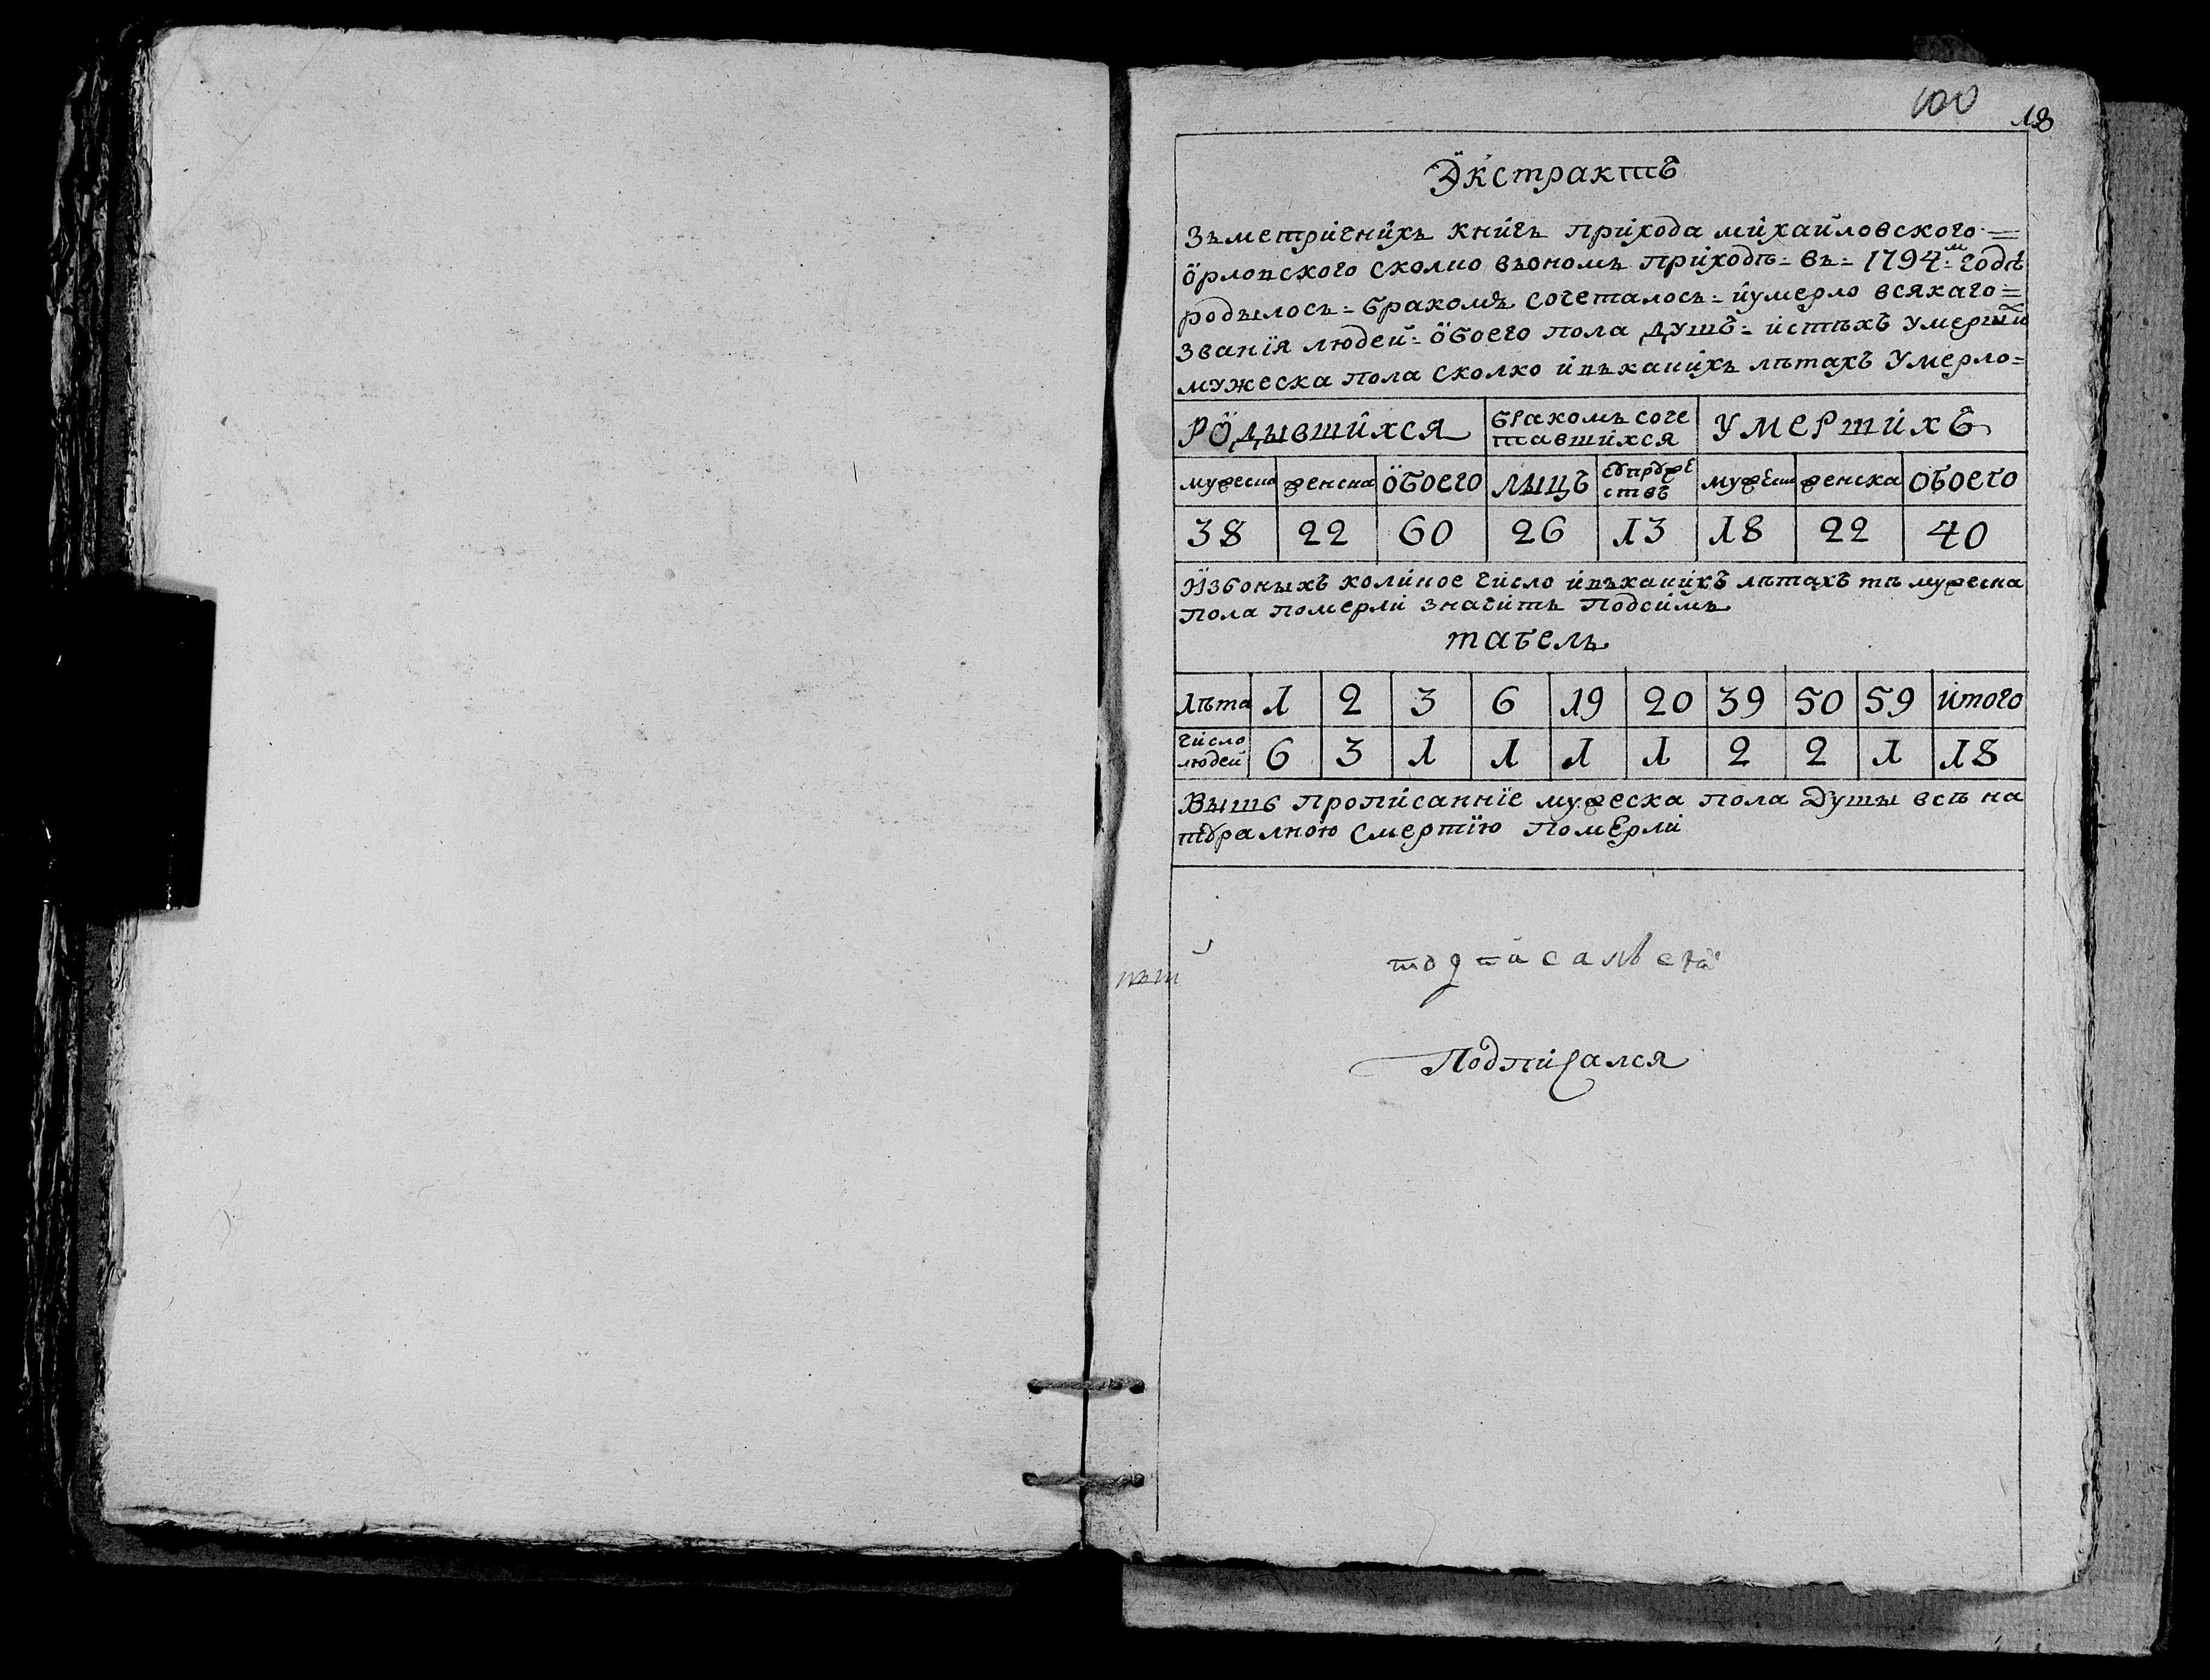 100
18
Экстрактъ
Зъметричнихъ книгъ прихода михайловского =
Орловского сколко въономъ приходѣ = въ = 1794 = м годѣ
родылось = бракомъ сочеталось = иумерло всякаго =
Званїя людей = обоего пола душъ = истѣхъ умерши х
мужеска пола сколко ивъкакихъ лѣтахъ Умерло =
Родывшихся | бракомъ соче тавшихся | Умершихъ
мужеска | женска | обоего | лыцъ | супруже ствъ | мужеска | женска | обоего
38 | 22 | 60 | 26 | 13 | 18 | 22 | 40
Изъоныхъ коликое число ивъкакихъ лѣтахъ тѣ мужеска
пола померли значитъ подсимъ
табель
лѣта | 1 | 2 | 3 | 6 | 19 | 20 | 39 | 50 | 59 | итого
число людей | 6 | 3 | 1 | 1 | 1 | 1 | 2 | 2 | 1 | 18
Вышъ прописаннїе мужеска пола Душы всѣ на
туралною смертїю померли
Подписался